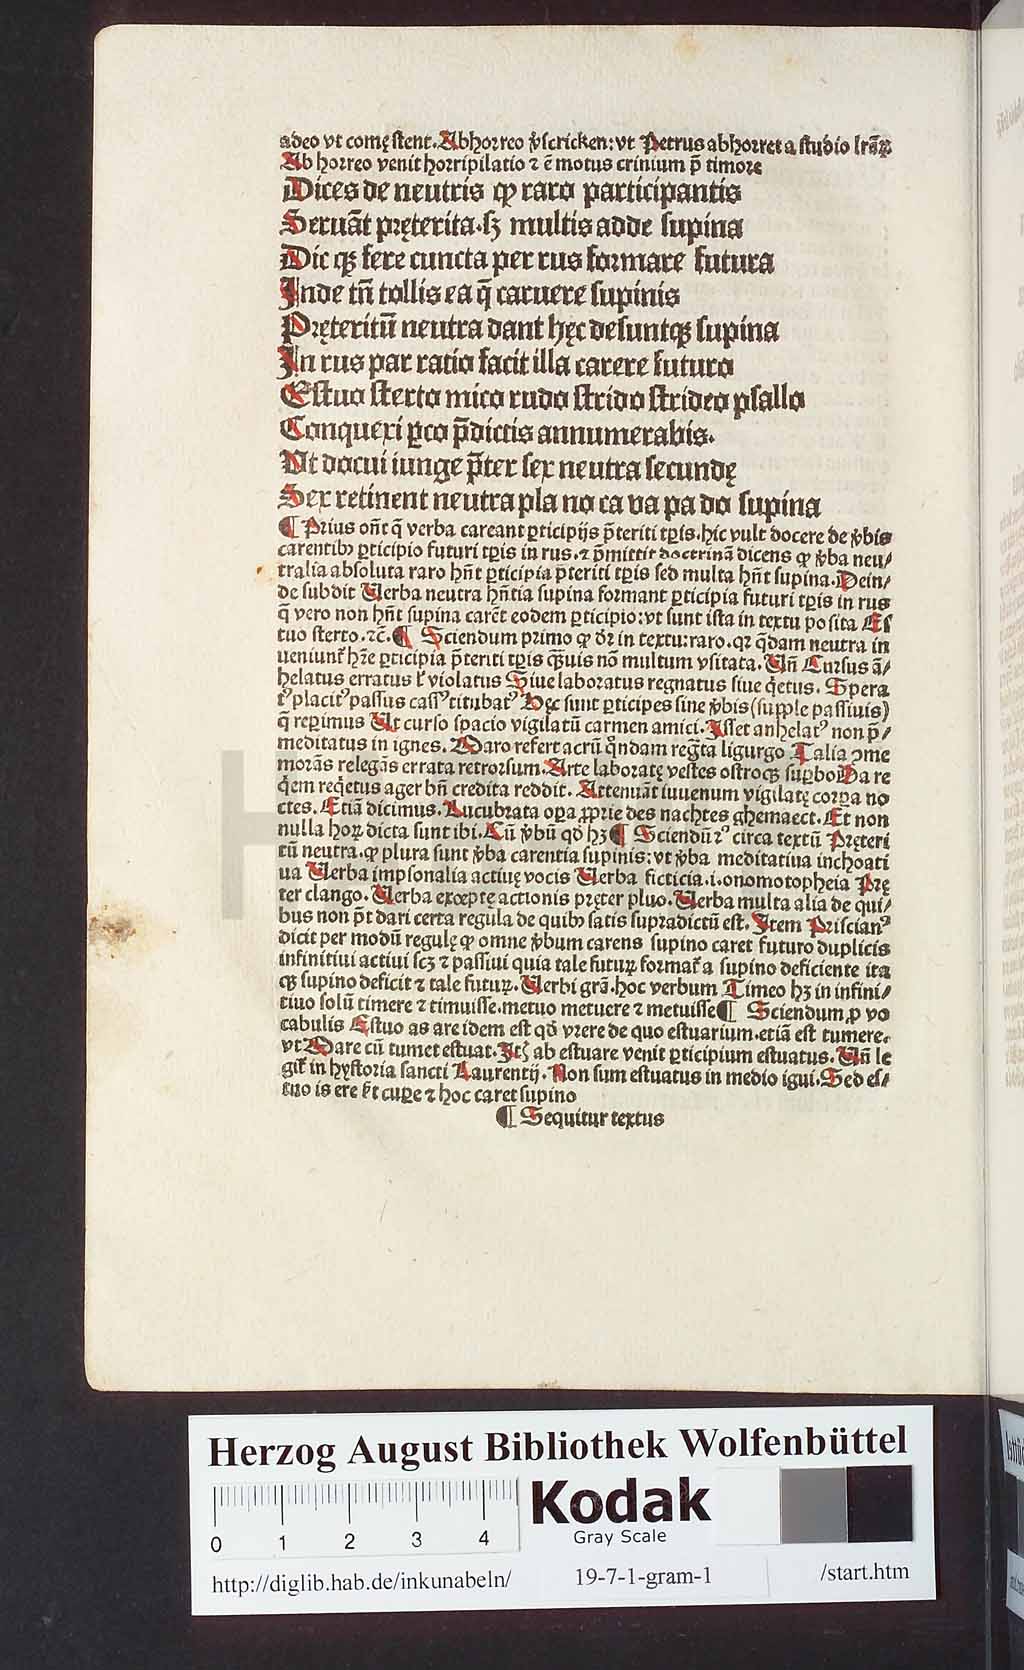 adeo vt comęſtent. Abhorreo v̓ſcricken: vt Petrus abhorret a ſtudio lr̄aꝝ
Ab horreo venit horripilatio ⁊ ē motus crinium p̄ timore
Dices de neutris ꝙ raro participantis
Seruāt pręterita. ſꝫ multis adde ſupina
Dic qꝫ fere cuncta per rus formare futura
Inde tn̄ tollis ea q̄ caruere ſupinis
Pręteritū neutra dant hęc deſuntqꝫ ſupina
In rus par ratio facit illa carere futuro
Eſtuo ſterto mico rudo ſtrido ſtrideo pſallo
Conquexi ꝑco p̄dictis annumerabis.
Ut docui iunge p̄ter ſex neutra ſecundę
Sex retinent neutra pla no ca va pa do ſupina
¶ Prius on̄t q̄ verba careant ꝑticipijs p̄teriti tꝑis. hic vult docere de v̓bis
carentibꝫ ꝑticipio futuri tꝑis in rus. ⁊ p̄mittit doctrinā dicens ꝙ v̓ba neu/
tralia abſoluta raro hn̄t ꝑticipia p̄teriti tꝑis ſed multa hn̄t ſupina. Dein/
de ſubdit Uerba neutra hn̄tia ſupina formant ꝑticipia futuri tꝑis in rus
q̄ vero non hn̄t ſupina carēt eodem ꝑticipio: vt ſunt iſta in textu poſita Eſ
tuo ſterto. ⁊c̄. ¶ Sciendum primo ꝙ dr̄ in textu: raro. qꝛ q̄dam neutra in
ueniunt᷑ hr̄e ꝑticipia p̄teriti tꝑis qᷓuis nō multum vſitata. Un̄ Curſus ā/
helatus erratus ł violatus Siue laboratus regnatus ſiue q̓etus. Spera
tꝰ placitꝰ paſſus caſſꝰ titubatꝰ Hęc ſunt ꝑticipes ſine v̓bis (ſupple paſſiuis)
q̄ reꝑimus Ut curſo ſpacio vigilatū carmen amici. Iſſet anhelatꝰ non p̄/
meditatus in ignes. Maro refert acrū qͦndam regᷓta ligurgo Talia ↄme
morās relegās errata retrorſum. Arte laboratę veſtes oſtroqꝫ ſuꝑbo Da re
q̓em req̓etus ager bn̄ credita reddit. Attenuāt iuuenum vigilatę corꝑa no
ctes. Etiā dicimus. Lucubrata oꝑa ꝓprie des nachtes ghemaect. Et non
nulla hoꝝ dicta ſunt ibi. Cū v̓bū qd̓ hꝫ ¶ Sciendū ꝛꝰ circa textū Pręteri
tū neutra. ꝙ plura ſunt v̓ba carentia ſupinis: vt v̓ba meditatiua inchoati
ua Uerba imꝑſonalia actiuę vocis Uerba ficticia .i. onomotopheia Prę
ter clango. Uerba exceptę actionis pręter pluo. Uerba multa alia de qui/
bus non p̄t dari certa regula de quibꝫ ſatis ſupradictū eſt. Item Priſcianꝰ
dicit per modū regulę ꝙ omne v̓bum carens ſupino caret futuro duplicis
infinitiui actiui ſcꝫ ⁊ paſſiui quia tale futuꝝ format᷑ a ſupino deficiente ita
qꝫ ſupino deficit ⁊ tale futuꝝ. Uerbi grā. hoc verbum Timeo hꝫ in infini/
tiuo ſolū timere ⁊ timuiſſe. metuo metuere ⁊ metuiſſe ¶ Sciendum, p vo
cabulis Eſtuo as are idem eſt qd̓ vrere de quo eſtuarium. etiā eſt tumere.
vt Mare cū tumet eſtuat. Itꝫ ab eſtuare venit ꝑticipium eſtuatus. Un̄ le
git᷑ in hyſtoria ſancti Laurentij. Non ſum eſtuatus in medio igni. Sed eſ/
tuo is ere ē̓t cuꝑe ⁊ hoc caret ſupino
¶ Sequitur textus
Herzog August Bibliothek Wolfenbüttel
0 1 2 3 4
Kodak
Gray Scale
http://diglib.hab.de/inkunabeln/ 19-7-1-gram-1 /start.htm